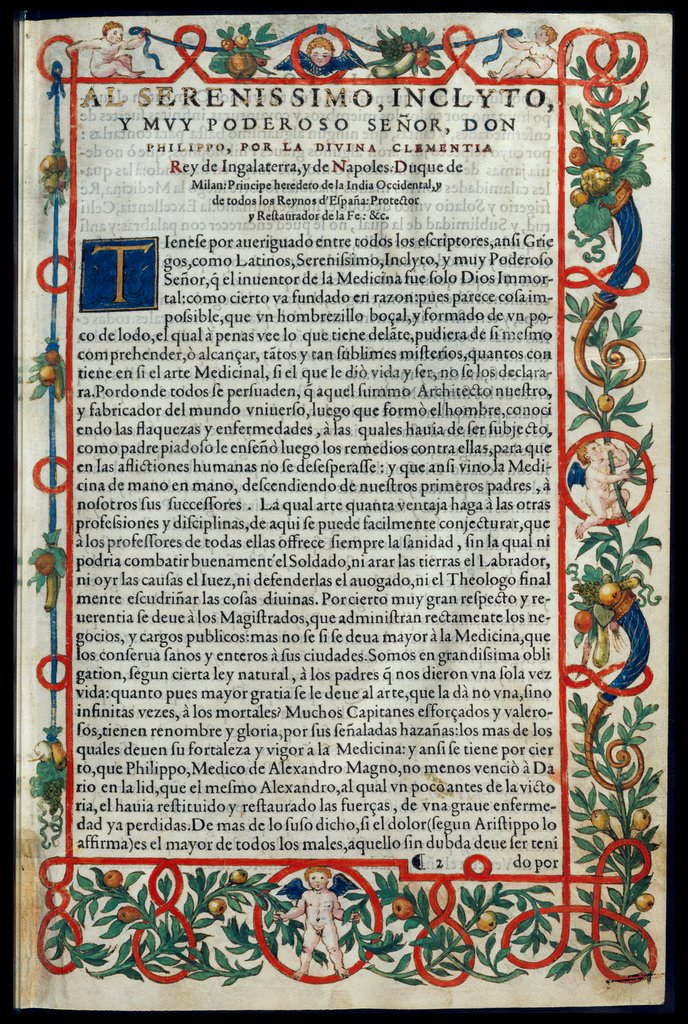 AL SERENISSIMO, INCLYTO,
Y MVY PODEROSO SEÑOR, DON
PHILIPPO, POR LA DIVINA CLEMENTIA
Rey de Ingalaterra, y de Napoles: Duque de
Milan: Principe heredero de la India Occidental, y
de todos los Reynos d'España: Protector
y Restaurador de la Fe: &c.
TIenese por aueriguado entre todos los escriptores, ansi Grie
gos, como Latinos, Serenissimo, Inclyto, y muy Poderoso
Señor, q̃ el inuentor de la Medicina fue solo Dios Immor
tal: como cierto va fundado en razon: pues parece cosa im-
possible, que vn hombrezillo boçal, y formado de vn po-
co de lodo, el qual à penas vee lo que tiene delãte, pudiera de si mesmo
comprehender, ò alcançar, tãtos y tan sublimes misterios, quantos con
tiene en si el arte Medicinal, si el que le diò vida y ser, no se los declara-
ra. Por donde todos se persuaden, q̃ aquel summo Architecto nuestro,
y fabricador del mundo vniuerso, luego que formò el hombre, conoci
endo las flaquezas y enfermedades, à las quales hauia de ser subjecto,
como padre piadoso le enseñò luego los remedios contra ellas, para que
en las afflictiones humanas no se desesperasse: y que ansi vino la Medi-
cina de mano en mano, descendiendo de nuestros primeros padres, à
nosotros sus successores. La qual arte quanta ventaja haga à las otras
professiones y disciplinas, de aqui se puede facilmente conjecturar, que
à los professores de todas ellas offrece siempre la sanidad, sin la qual ni
podria combatir buenament'el Soldado, ni arar las tierras el Labrador,
ni oyr las causas el Iuez, ni defenderlas el auogado, ni el Theologo final
mente escudriñar las cosas diuinas. Por cierto muy gran respecto y re-
uerentia se deue à los Magistrados, que administran rectamente los ne-
gocios, y cargos publicos: mas no se si se deua mayor à la Medicina, que
los conserua sanos y enteros à sus ciudades. Somos en grandissima obli
gation, segun cierta ley natural, à los padres q̃ nos dieron vna sola vez
vida: quanto pues mayor gratia se le deue al arte, que la dà no vna, sino
infinitas vezes, à los mortales? Muchos Capitanes esforçados y valero-
sos, tienen renombre y gloria, por sus señaladas hazañas: los mas de los
quales deuen su fortaleza y vigor à la Medicina: y ansi se tiene por cier
to, que Philippo, Medico de Alexandro Magno, no menos venciò à Da
rio en la lid, que el mesmo Alexandro, al qual vn poco antes de la victo
ria, el hauia restituido y restaurado las fuerças, de vna graue enferme-
dad ya perdidas. De mas de lo suso dicho, si el dolor (segun Aristippo lo
affirma) es el mayor de todos los males, aquello sin dubda deue ser teni
2 do por